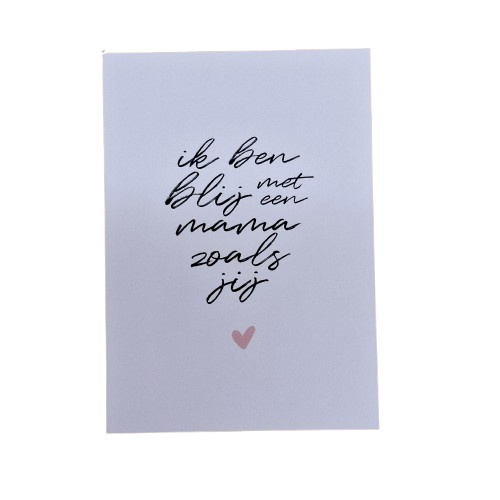 ik ben
blij met een
mama
zoals
jij